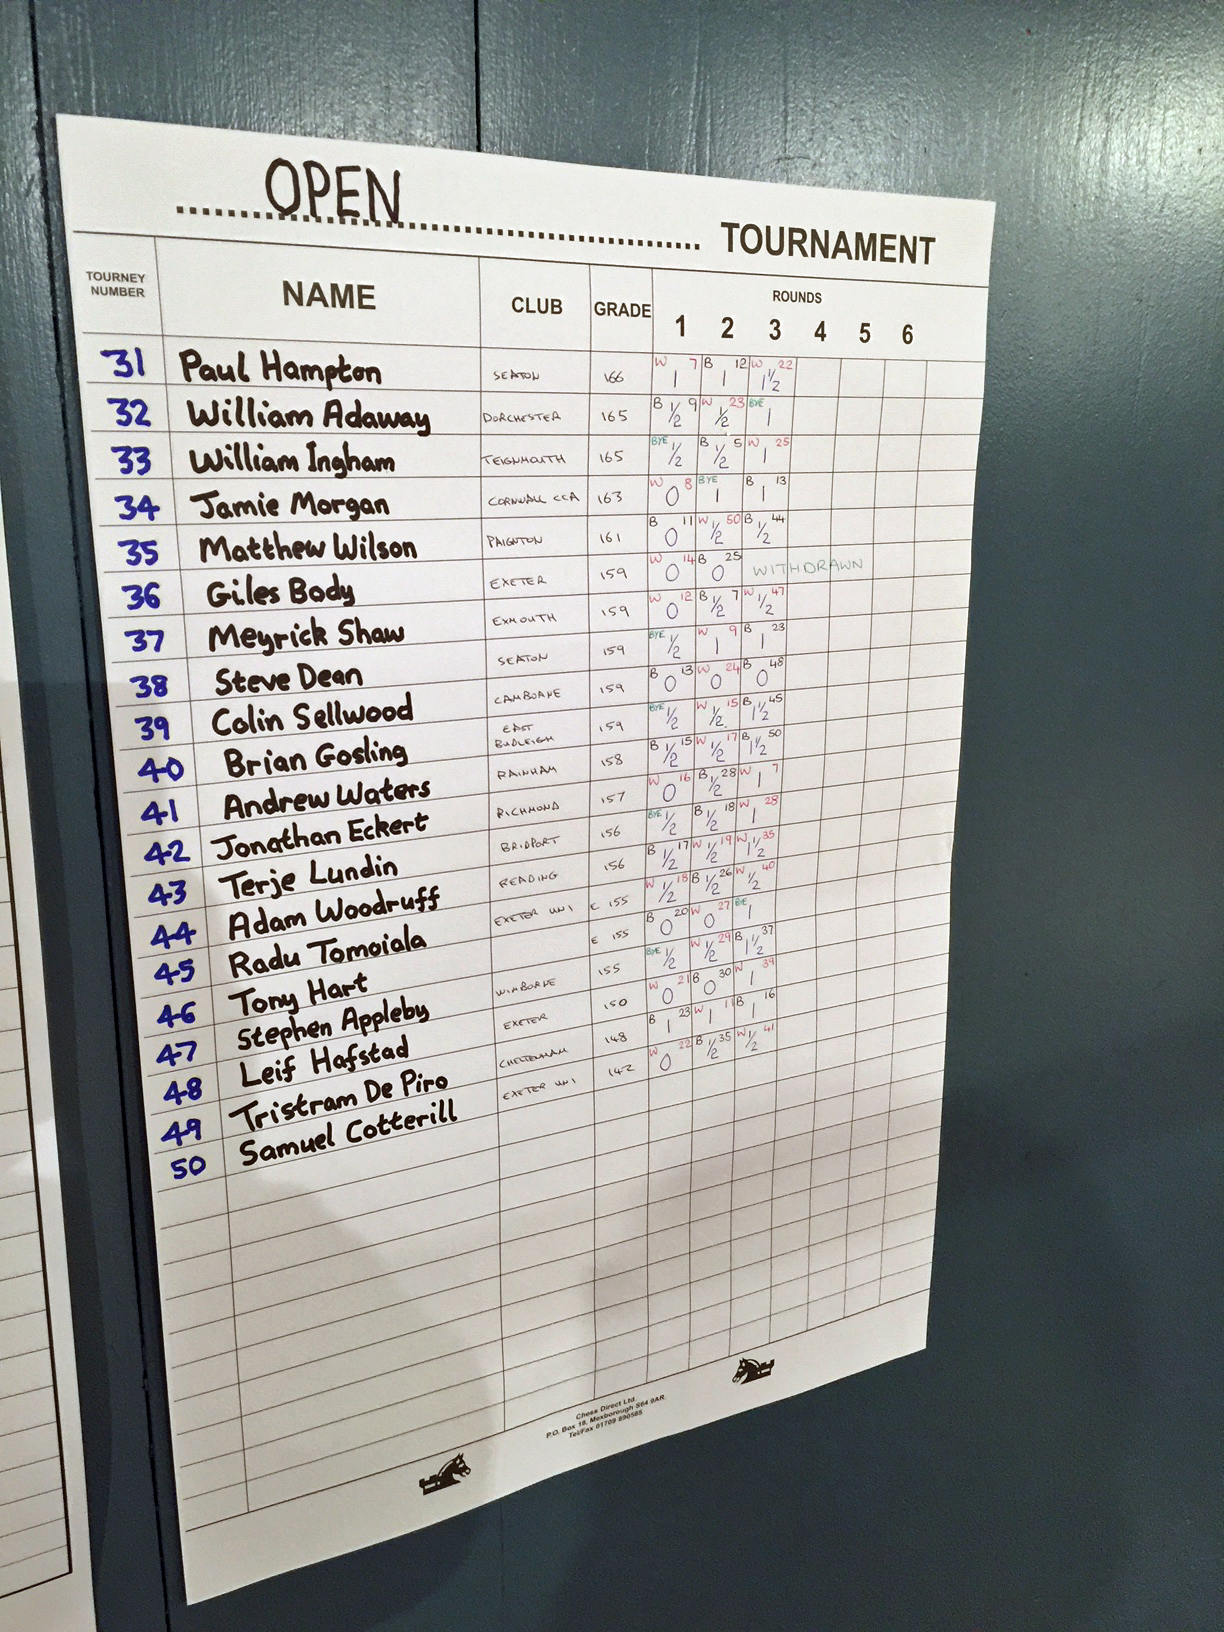 OPEN TOURNAMENT
TOURNEY NUMBER NAME CLUB GRADE ROUNDS
1 2 3 4 5 6
31 Paul Hampton SEATON 166 W 7 1 B 12 1 W 22 1 1/2
32 William Adaway DORCHESTER 165 B 9 1/2 W 23 1/2 BYE 1
33 William Ingham TEIGNMOUTH 165 BYE 1/2 B 5 1/2 W 25 1
34 Jamie Morgan CORNWALL CCA 163 W 8 0 BYE 1 B 13 1
35 Matthew Wilson PAIGNTON 161 B 11 0 W 50 1/2 B 44 1/2
36 Giles Body EXETER 159 W 14 0 B 25 0 WITHDRAWN
37 Meyrick Shaw EXMOUTH 159 W 12 0 B 7 1/2 W 47 1/2
38 Steve Dean SEATON 159 BYE 1/2 W 9 1 B 23 1
39 Colin Sellwood CAMBORNE 159 B 13 0 W 24 0 B 48 0
40 Brian Gosling EAST BUDLEIGH 159 BYE 1/2 W 15 1/2 B 45 1 1/2
41 Andrew Waters RAINHAM 158 B 15 1/2 W 17 1/2 B 50 1 1/2
42 Jonathan Eckert RICHMOND 157 W 16 0 B 28 1/2 W 7 1
43 Terje Lundin BRIDPORT 156 BYE 1/2 B 18 1/2 W 28 1
44 Adam Woodruff READING 156 B 17 1/2 W 19 1/2 W 35 1 1/2
45 Radu Tomoiala EXETER UNI E 155 W 18 1/2 B 26 1/2 W 40 1/2
46 Tony Hart E 155 B 20 0 W 27 0 BYE 1
47 Stephen Appleby WIMBORNE 155 BYE 1/2 W 29 1/2 B 37 1 1/2
48 Leif Hafstad EXETER 150 W 21 0 B 30 0 W 39 1
49 Tristram De Piro CHELTENHAM 148 B 23 1 W 11 1 B 16 1
50 Samuel Cotterill EXETER UNI 142 W 22 0 B 35 1/2 W 41 1/2
Chess Direct Ltd.
P.O. Box 18, Mexborough S64 9AR
Tel/Fax 01709 890565